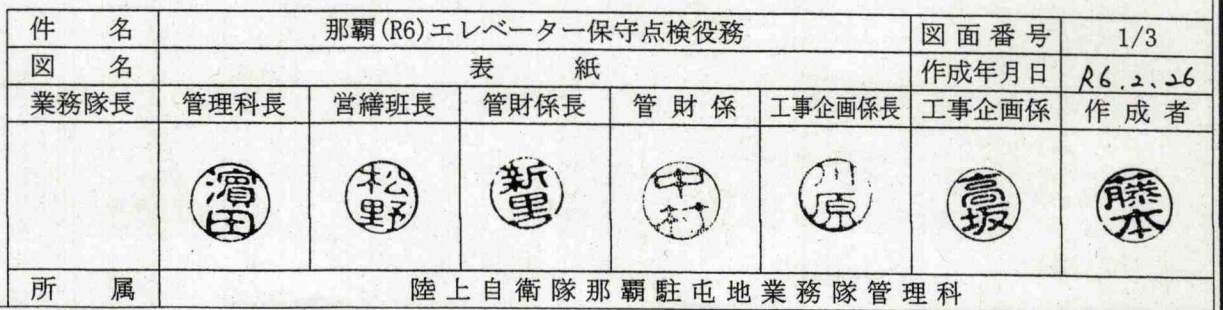 件 名 那覇(R6)エレベーター保守点検役務 図面番号 1/3
図 名 表 紙 作成年月日 R6.2.26
業務隊長 管理科長 営繕班長 管財係長 管財係 工事企画係長 工事企画係 作成者
濵田 松野 新里 中村 川原 高坂 藤本
所 属 陸上自衛隊那覇駐屯地業務隊管理科